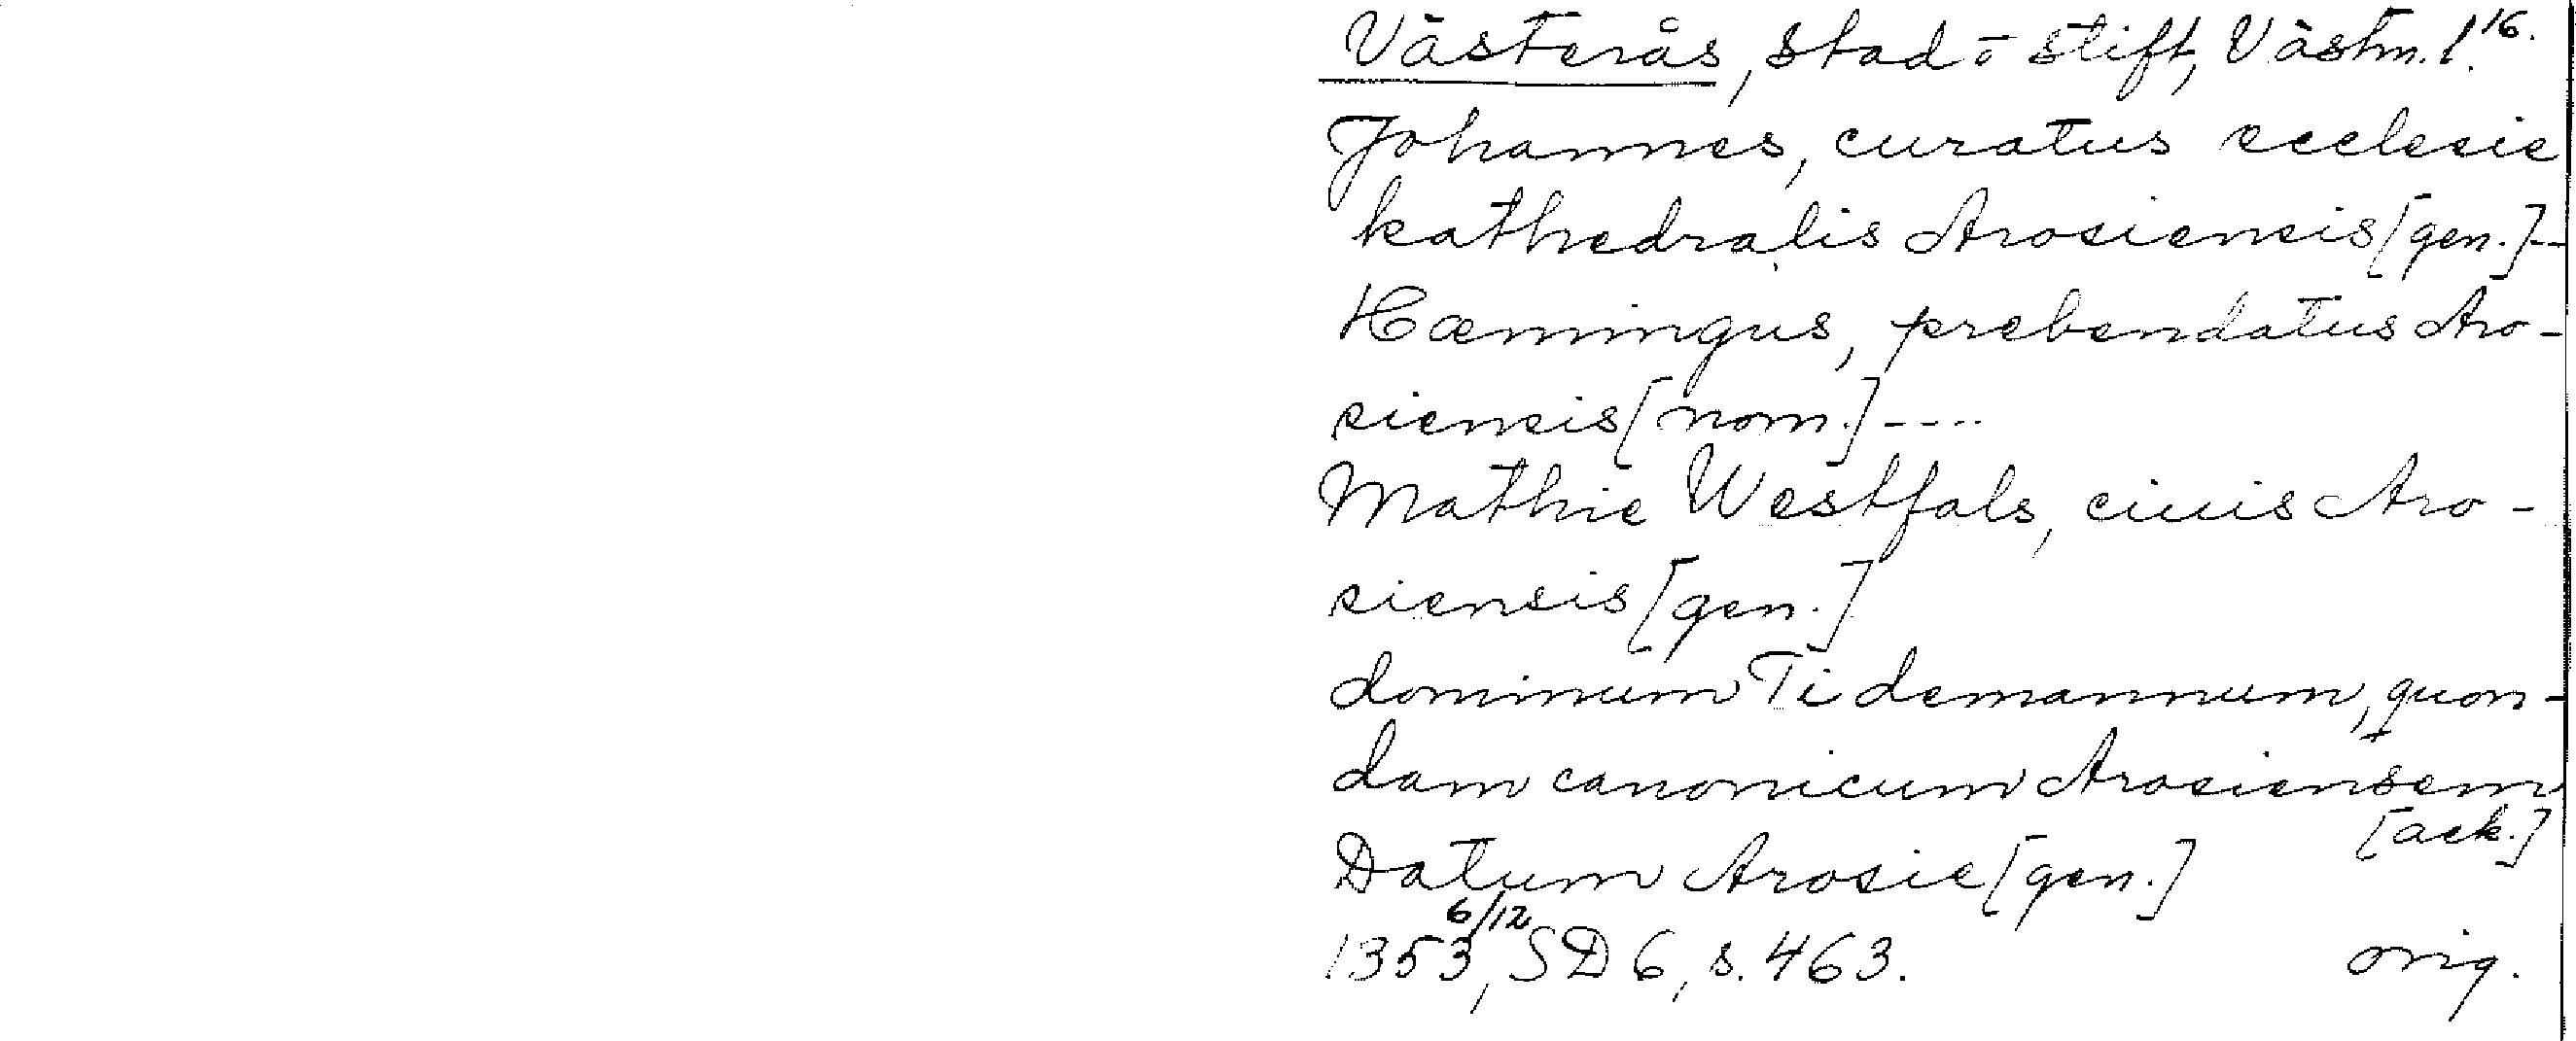 Västerås, stad o stift, Västm. l. 16.
Johannes, curatus ecclesie
kathedralis Arosiensis [gen.] --
Hæmingus, prebendatus Aro-
siensis [nom.] ----
Mathie Westfals, ciuis Aro-
siensis [gen.]
dominum Tidemannum, quon-
dam canonicum Arosiensem
[ack.]
Datum Arosie [gen.]
1353 6/12, SD 6, s. 463. orig.